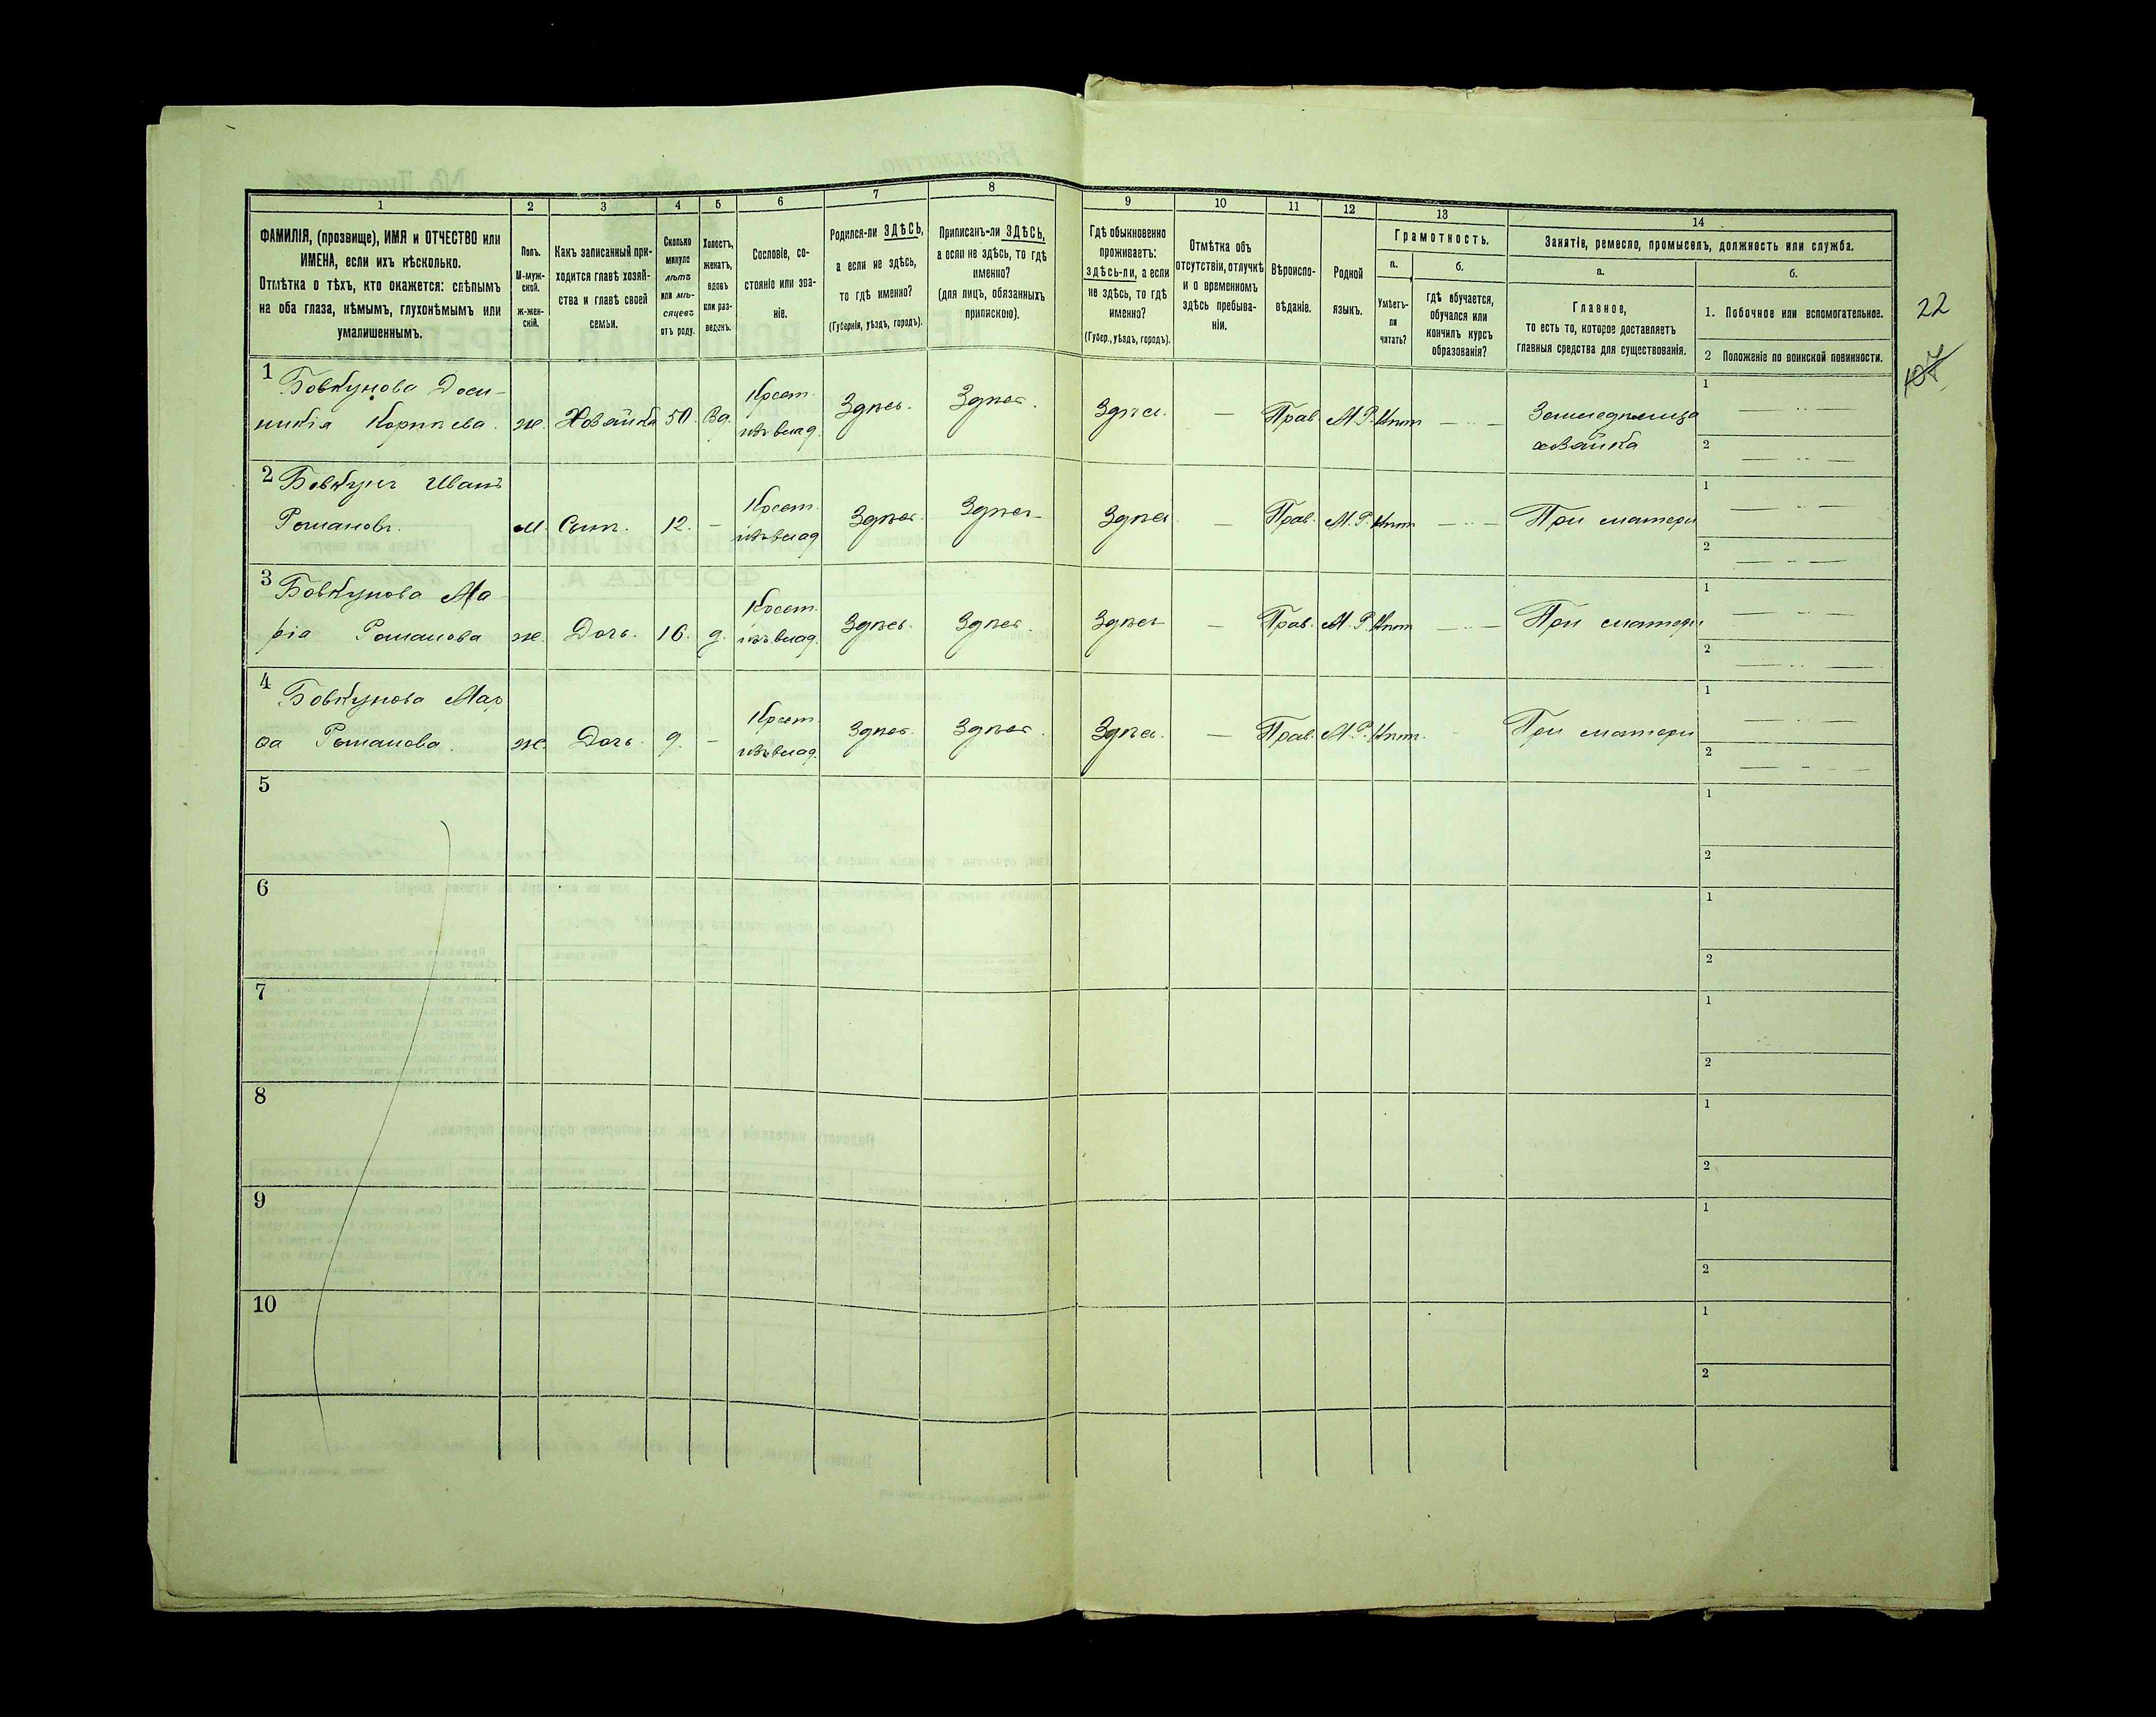 22
107
1 2 3 4 5 6 7 8 9 10 11 12 13 14
ФАМИЛІЯ, (прозвище), ИМЯ и ОТЧЕСТВО или
ИМЕНА, если ихъ нѣсколько.
Отмѣтка о тѣхъ, кто окажется: слѣпымъ
на оба глаза, нѣмымъ, глухонѣмымъ или
умалишеннымъ.
Полъ.
М-муж-
ской.
Ж-жен-
скій.
Какъ записанный при-
ходится главѣ хозяй-
ства и главѣ своей
семьи.
Сколько
минуло
лѣтъ
или мѣ-
сяцевъ
отъ роду.
Холостъ,
женатъ,
вдовъ
или раз-
веденъ.
Сословіе, со-
стояніе или зва-
ніе.
Родился-ли ЗДѢСЬ,
а если не здѣсь,
то гдѣ именно?
(Губернія, уѣздъ, городъ).
Приписанъ-ли ЗДѢСЬ,
а если не здѣсь, то гдѣ
именно?
(для лицъ, обязанныхъ
припискою).
Гдѣ обыкновенно
проживаетъ:
здѣсь-ли, а если
не здѣсь, то гдѣ
именно?
(Губер., уѣздъ, городъ).
Отмѣтка объ
отсутствіи, отлучкѣ
и о временномъ
здѣсь пребыва-
ніи.
Вѣроиспо-
вѣданіе.
Родной
языкъ.
Грамотность.
а.
Умѣетъ-
ли
читать?
б.
гдѣ обучается,
обучался или
кончилъ курсъ
образованія?
Занятіе, ремесло, промыселъ, должность или служба.
а.
Главное,
то есть то, которое доставляетъ
главныя средства для существованія.
б.
1. Побочное или вспомогательное.
2 Положеніе по воинской повинности.
1 Бовкунова Доси-
никія Корнѣева. ж. Хозяйка 50. Вд. Крест. изъ влад. Здѣсь. Здѣсь. Здѣсь. — Прав. М.Р. Нѣтъ — Земледѣлица
хозяйка
1
2
2 Бовкунъ Иванъ
Романовъ. м. Сынъ. 12. — Крест. изъ влад. Здѣсь. Здѣсь Здѣсь — Прав. М.Р. Нѣтъ — При матери
1
2
3 Бовкунова Ма-
рія Романова ж. Дочь. 16. д. Крест. изъ влад. Здѣсь. Здѣсь. Здѣсь — Прав. М.Р. Нѣтъ — При матери
1
2
4 Бовкунова Мар
ѳа Романова. ж. Дочь. 9. — Крест. изъ влад. Здѣсь. Здѣсь. Здѣсь. — Прав. М.Р. Нѣтъ. При матери
1
2
5
1
2
6
1
2
7
1
2
8
1
2
9
1
2
10
1
2